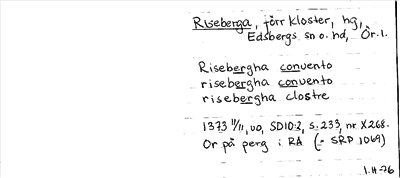 Riseberga, förr kloster, hg,
Edsbergs sn o. hd, Ör. l.
Risebergha convento
risebergha convento
risebergha clostre
1373 11/11, vo, SD10:2, s. 233, nr X268.
Or på perg i RA (= SRP 1069)
1.H-76